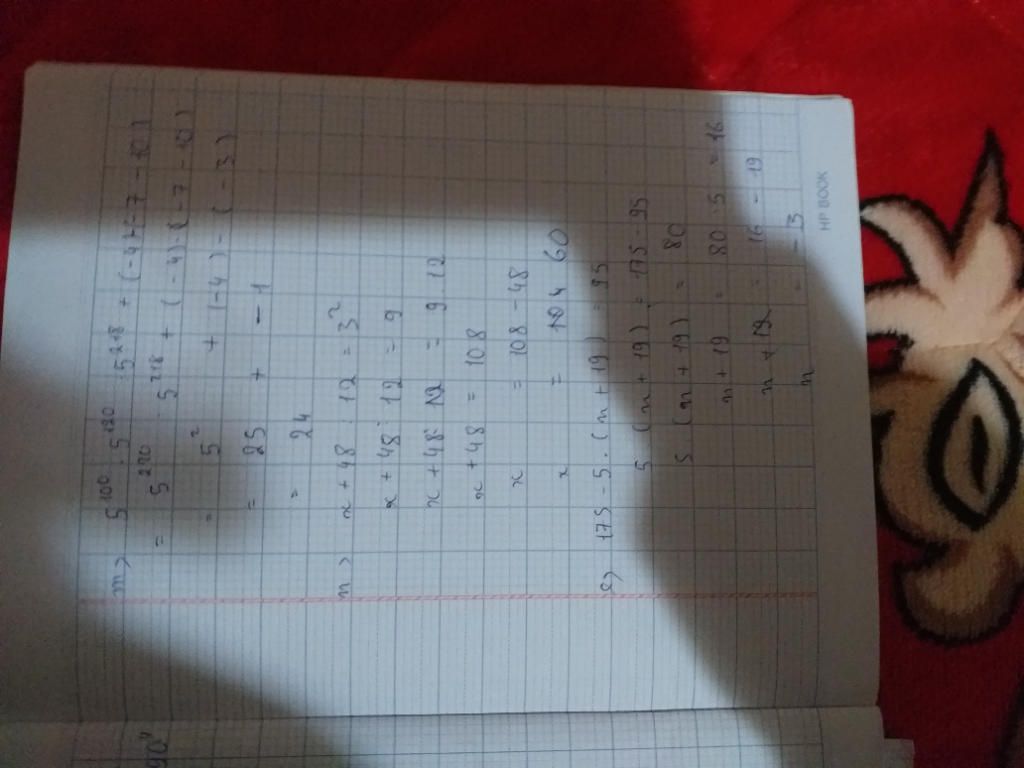 m) 5¹⁰⁰ . 5¹²⁰ : 5²¹⁸ + (-4)-(-7-10)
= 5²²⁰ : 5²¹⁸ + (-4).(-7-10)
= 5² + (-4) - (-3)
= 25 + -1
= 24
n) x + 48 : 12 = 3²
x + 48 : 12 = 9
x + 48 : 12 = 9 . 12
x + 48 = 108
x = 108 - 48
x = 104 60
e) 175 - 5 . (x + 19) = 95
5 (x + 19) = 175 - 95
5 (x + 19) = 80
x + 19 = 80 : 5 = 16
x + 19 = 16 - 19
x = -3
HP BOOK
90"